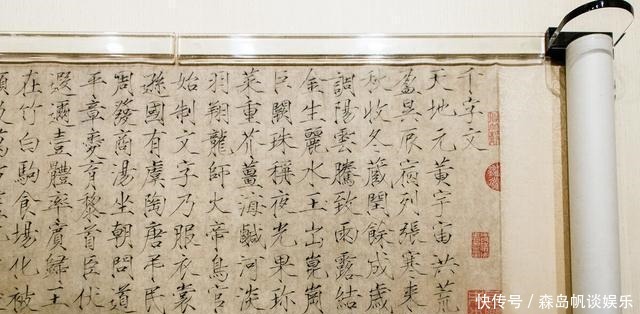 千字文
天地元黃宇宙洪荒
盈昃辰宿列張寒来
秋收冬藏閏餘成歲
調陽雲騰致雨露結
金生麗水玉出崑崗
巨闕珠稱夜光果珍
菜重芥薑海鹹河淡
羽翔龍師火帝鳥官
始制文字乃服衣裳
遜國有虞陶唐弔民
周發商湯坐朝問道
平章愛育黎首臣伏
遐邇壹體率賓歸王
在竹白駒食場化被
快传号/森岛帆谈娱乐